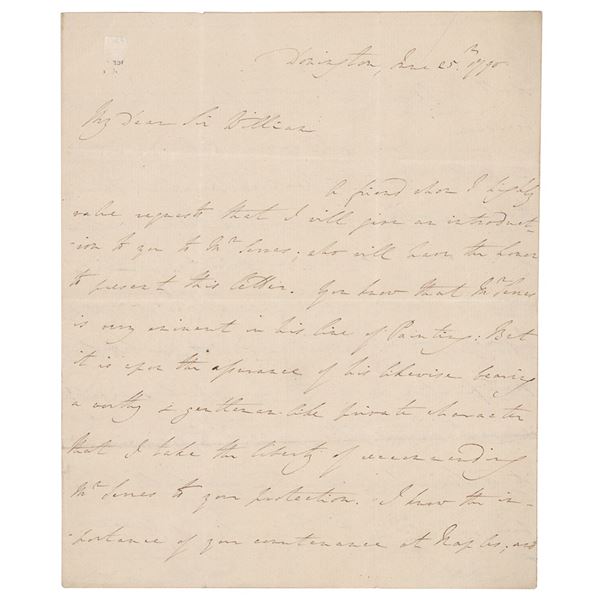 Donington, June 25th. 1790
My dear Sir William
A friend whom I highly
value, requests that I will give an introduct-
-ion to you to Mr. Serres; who will have the honor
to present this letter. You know that Mr. Serres
is very eminent in his line of Painting: But
it is upon the assurance of his likewise bearing
a worthy & gentleman-like private character
that I take the liberty of recommending
Mr. Serres to your protection. I know the im-
-portance of your countenance at Naples; and